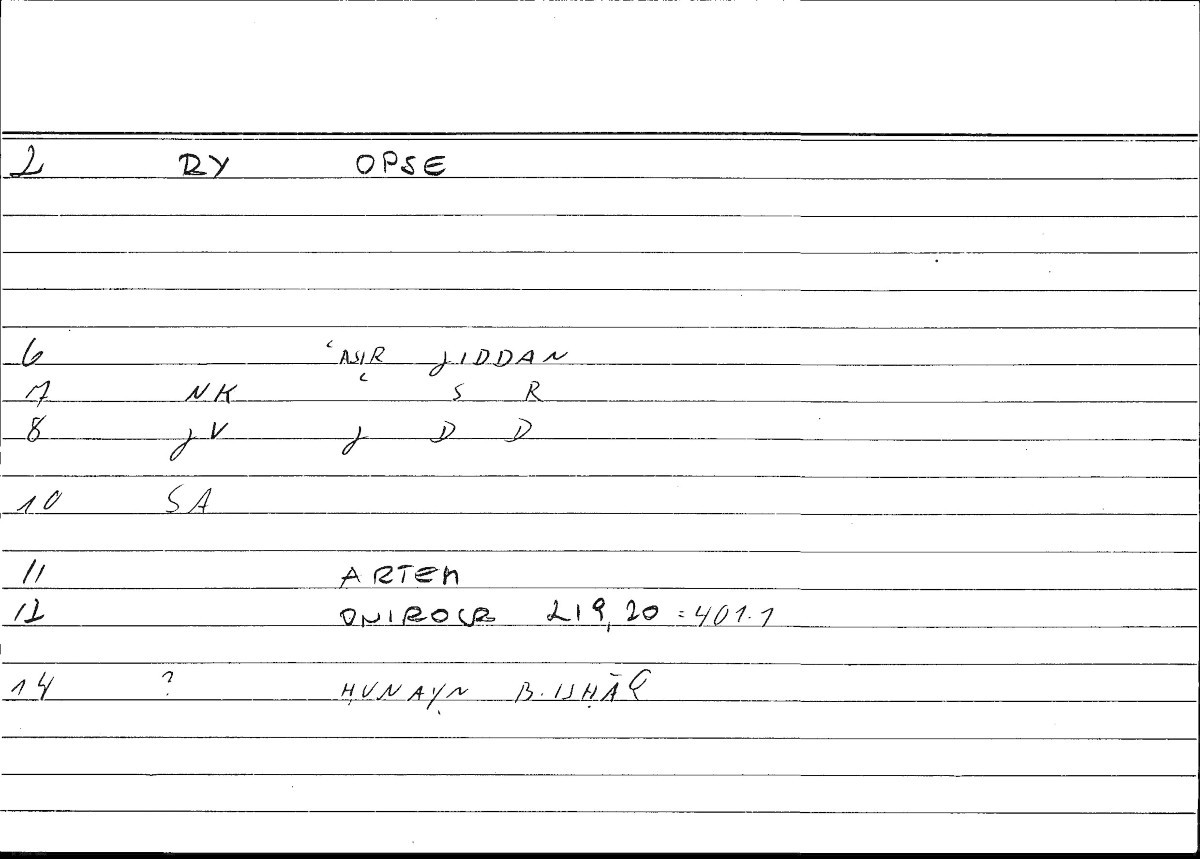 2 RY OPSE
6 ʿASIR JIDDAN
7 NK ʿ S R
8 JV J D D
10 SA
11 ARTEM
12 ONIROCR 219,20 = 401.1
14 ? ḤUNAYN B. ISḤĀQ